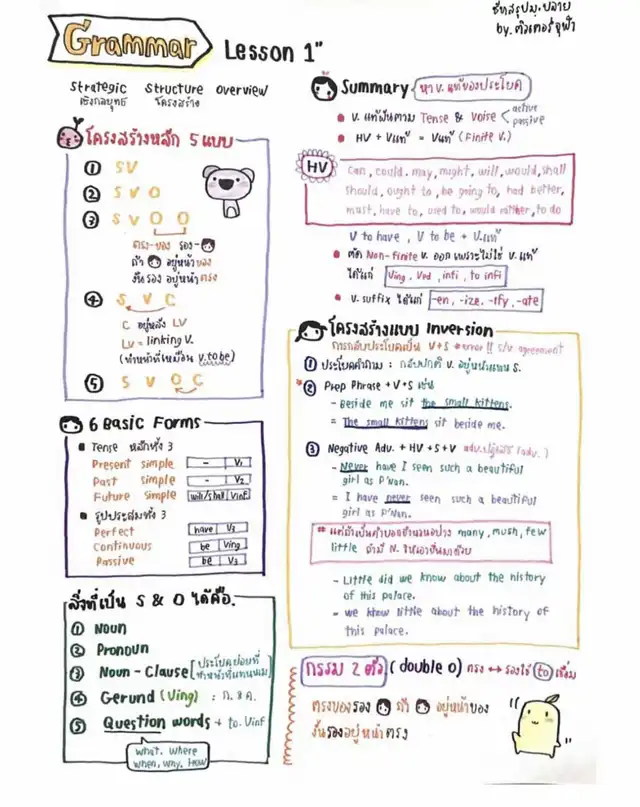 ชีทสรุปม.ปลาย
by. ติวเตอร์จุฬา
Grammar Lesson 1"
Strategic Structure overview
เชิงกลยุทธ์ โครงสร้าง
โครงสร้างหลัก 5 แบบ
① S V
② S V O
③ S V O O
ตรง-ของ รอง-
ถ้า อยู่หน้าของ
งั้นรอง อยู่หน้าตรง
④ S V C
C อยู่หลัง LV
LV = linking V.
(ทำหน้าที่เหมือน v. to be)
⑤ S V O C
6 Basic Forms
Tense หลักทั้ง 3
Present simple - V₁
Past simple - V₂
Future simple will/shall Vinf
รูปประสมทั้ง 3
Perfect have V₃
Continuous be Ving
Passive be V₃
สิ่งที่เป็น S & O ได้คือ.
① Noun
② Pronoun
③ Noun - Clause [ประโยคย่อยที่
ทำหน้าที่แทนนาม]
④ Gerund (Ving) : ก. ธ ค.
⑤ Question words + to. Vinf
what. where
when, why. How
Summary หา v. แท้ของประโยค
• v. แท้ผันตาม Tense & Voise < active
passive
• HV + Vแท้ = Vแท้ (Finite V.)
HV
Can, could, may, might, will, would, shall
should, ought to, be going to, had better,
must, have to, used to, would rather, to do
V to have , V to be + V.แท้
• ตัด Non-finite v. ออก เพราะไม่ใช่ v. แท้
ได้แก่ Ving, Ved, infi, to infi
• v. suffix ได้แก่ -en, -ize, -ify, -ate
โครงสร้างแบบ Inversion
การกลับประโยคเป็น V+S *error!! s/v agreement
① ประโยคคำถาม : กลับปกติ v. อยู่หน้าแทน S.
*② Prep Phrase + V + S เช่น
- Beside me sit the small kittens.
= The small kittens sit beside me.
③ Negative Adv. + HV + S + V adv.ปฏิเสธ (adv.)
- Never have I seen such a beautiful
girl as P'Nan.
= I have never seen such a beautiful
girl as P'Nan.
** แต่ถ้าเป็นคำบอกจำนวนอย่าง many, mush, few
little ถ้ามี N. ให้เอาขึ้นมาด้วย
- Little did we know about the history
of this palace.
= we know little about the history of
this palace.
กรรม 2 ตัว (double o) ตรง ↔ รองใช้ to เชื่อม
ตรงของรอง ถ้า อยู่หน้าของ
งั้นรองอยู่หน้าตรง